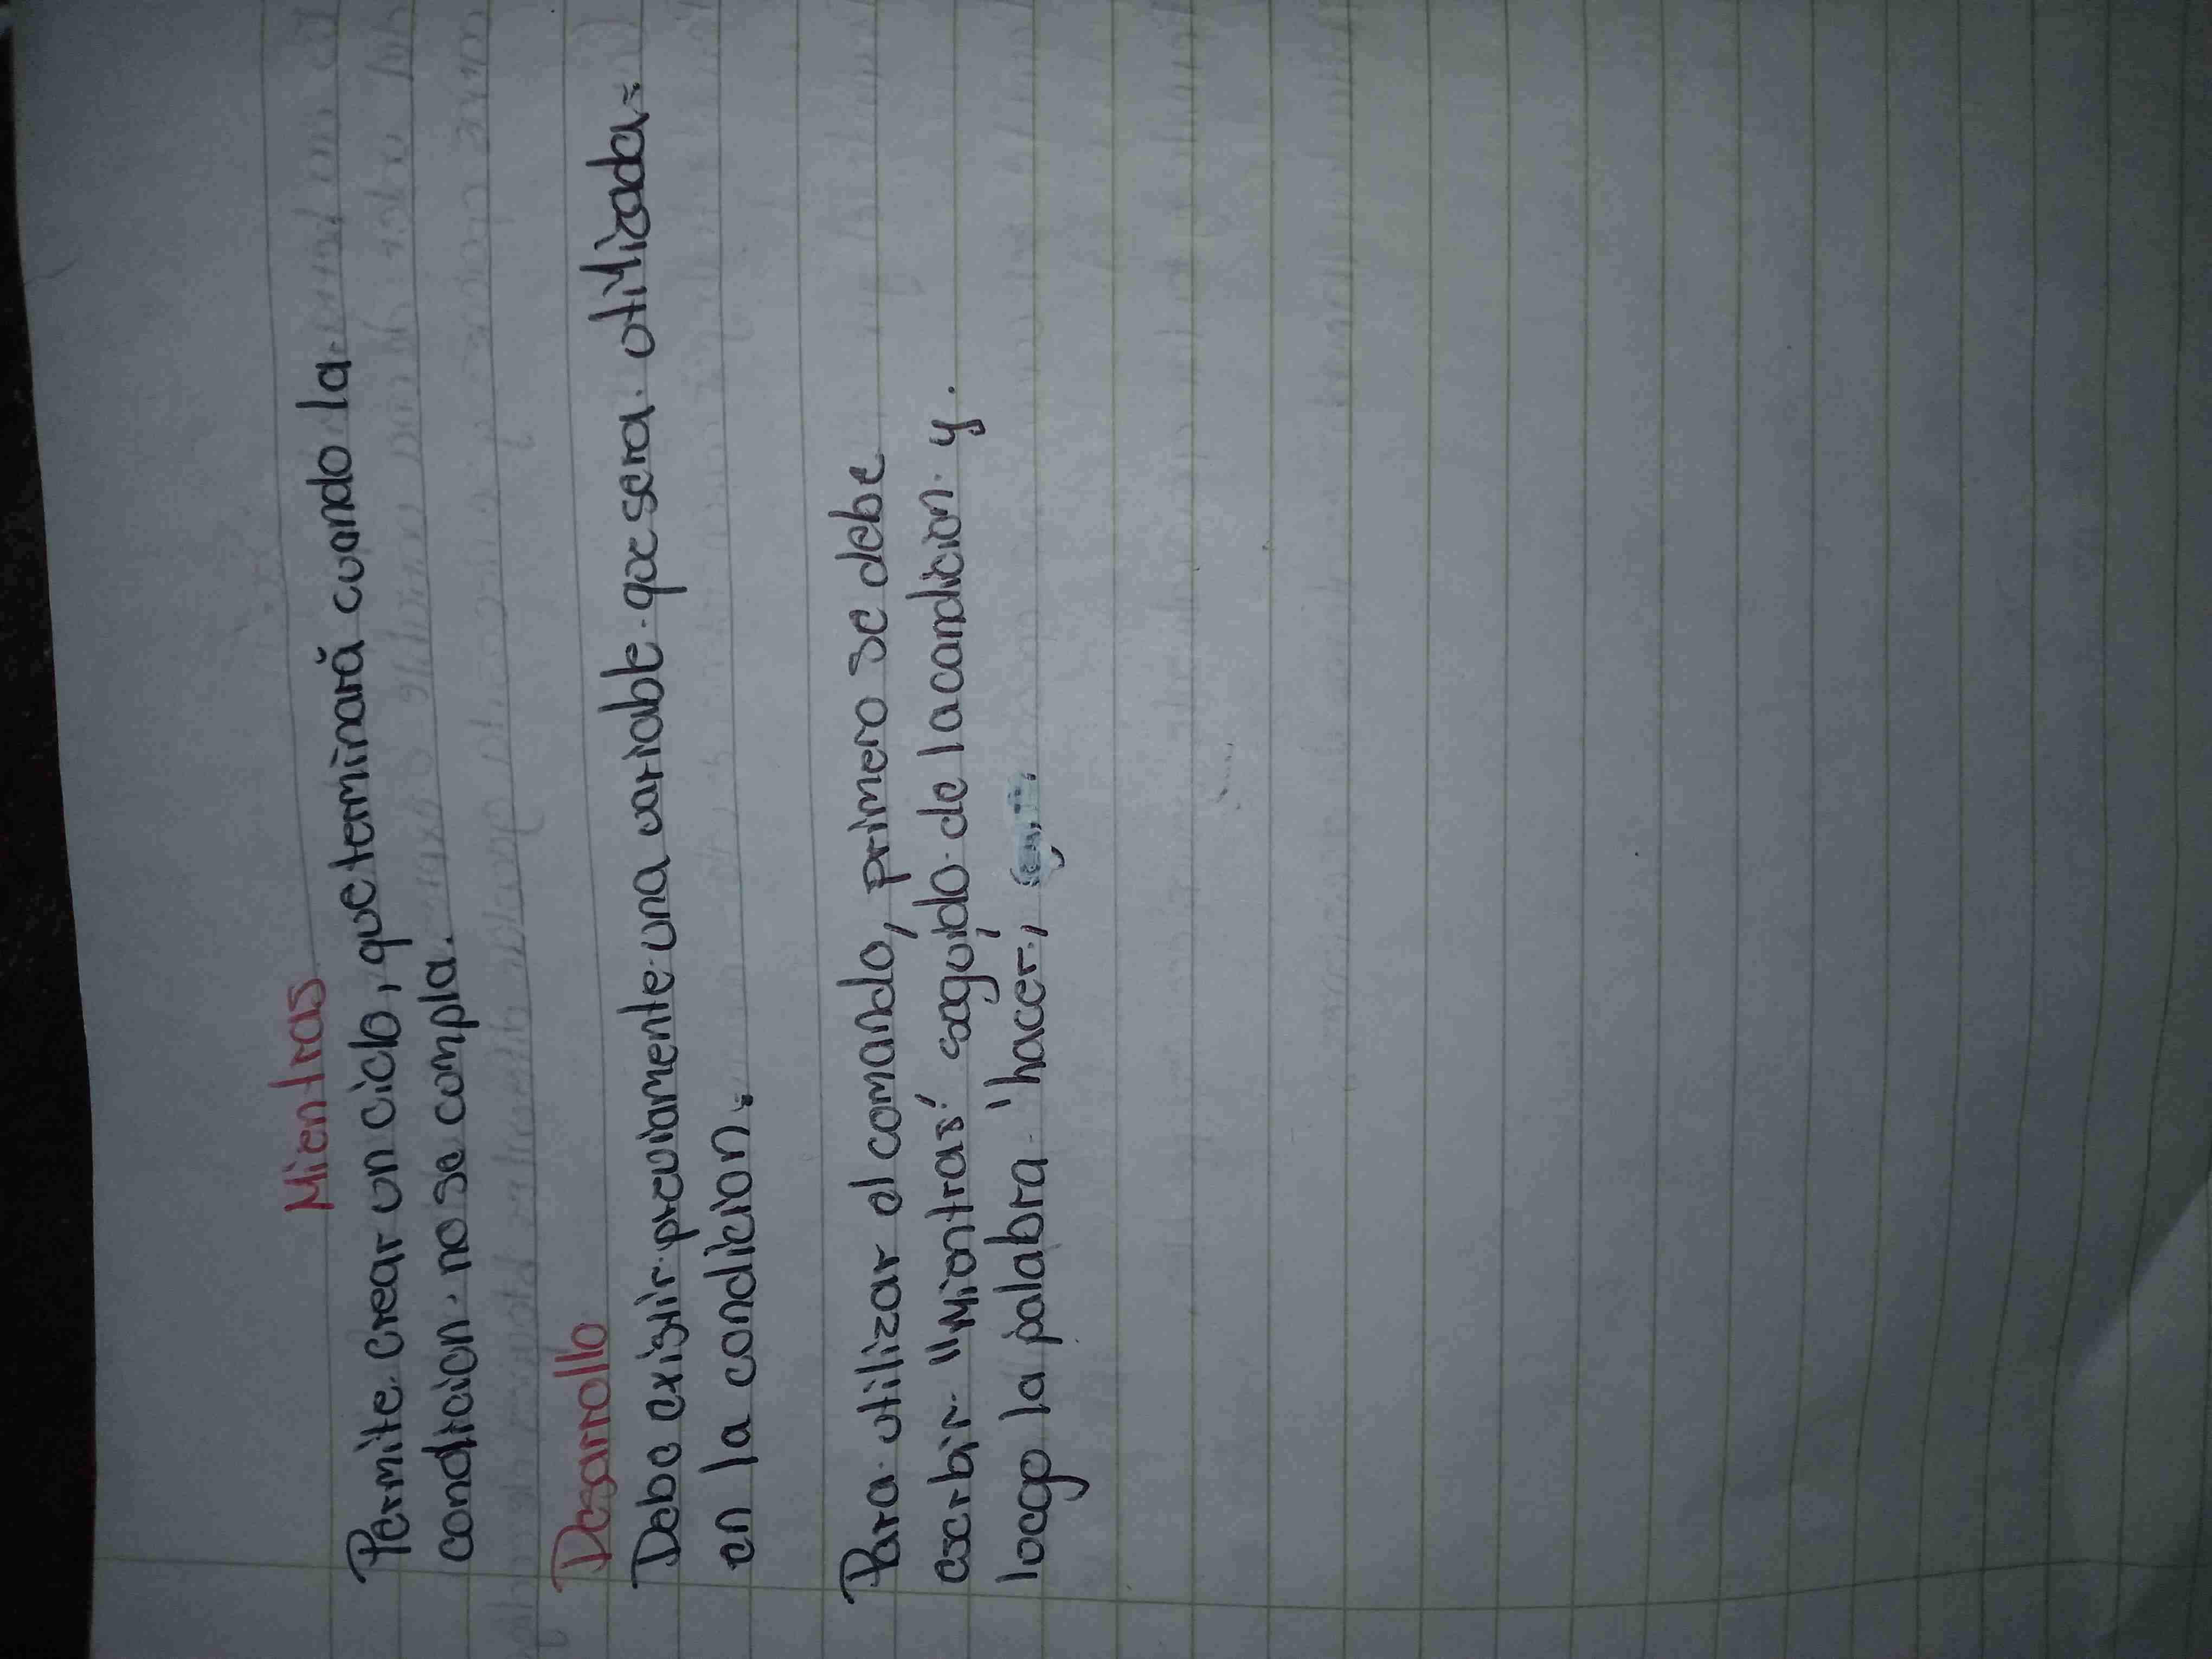 Mientras
Permite crear un ciclo, que terminará cuando la
condicion no se compla.
Desarrollo
Debe existir previamente una variable que sera utilizada
en la condicion.
Para utilizar el comando, primero se debe
escrbir "Mientras" seguido de la condicion y
loego la palabra 'hacer,